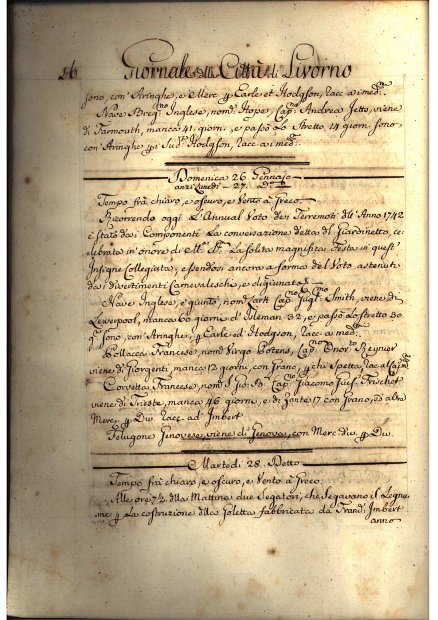 16 Giornale della Città di Livorno
sono, con' Aringhe, e Merc. p Earle et Hodgson, Racc. a i med.mi
Nave Brig.no Inglese, nom.a Hope, Cap.no Andrea Jetto, viene
di Jarmouth, manca 41. giorni, e passò Lo Stretto 14 giorni sono
con' Aringhe p i Sud.i Hodgson, racc. a i med.mi
Domenica 26. Gennaio
anzi Lunedi - 27. D.o
Tempo frà chiaro, e oscuro, e Vento à Greco.
Ricorrendo oggi L'Annual Voto dei Terremoti dell'Anno 1742
è stata dai Componenti La conversazione detta del Giardinetto, ce-
lebrata in'onore di M.a La solita magnifica Festa in quest'
Insigne Collegiata; essendosi ancora a forma del Voto astenuti
dai divertimenti Carnevaleschi, e digiunato.
Nave Inglese, è giunto, nom. Cap.no Smith, viene di
Leverpool, manca 60 giorni, d' 32, e passò Lo stretto 30
g.ni sono, con' Aringhe, p Earle ed Hodgson, racc. a i med.mi
Pollacca Francese, nom.a Virgo Potens, Cap.no Reynier
viene di Giorgenti, manca 12 giorni, con Grano, p chi Spetta, racc.
Corvetta Francese, nom.a S. Gio. B. Cap.no Giacomo
viene di Trieste, manca 46 giorni, e di Zante 17 con Grano, ed altre
Merc. p Div. Racc. ad Imbert
Felugone Genovese, viene di Genova, con Merc. div. p Div.
Martedi 28. Detto
Tempo frà chiaro, e oscuro, e Vento à Greco.
Alle ore 7½ della Mattina due Segatori, che segavano il Legna-
me p La costruzione della Goletta fabbricata da Imbert
anno